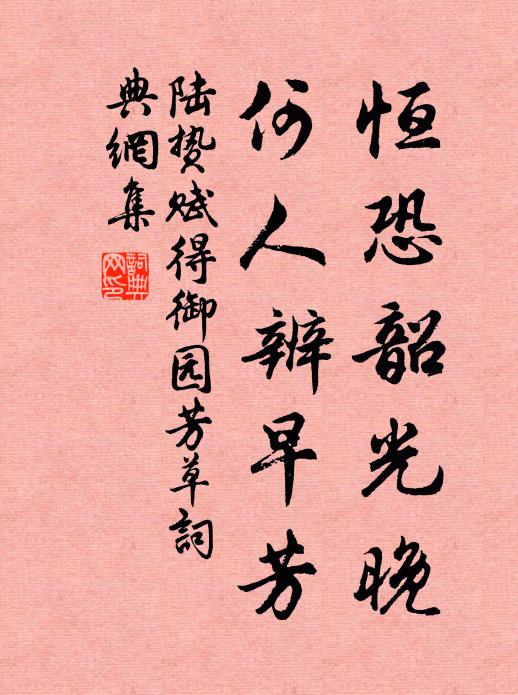 恒恐韶光晚
何人辨早芳
陆贽赋得御园芳草詞
典網集
詞典网印